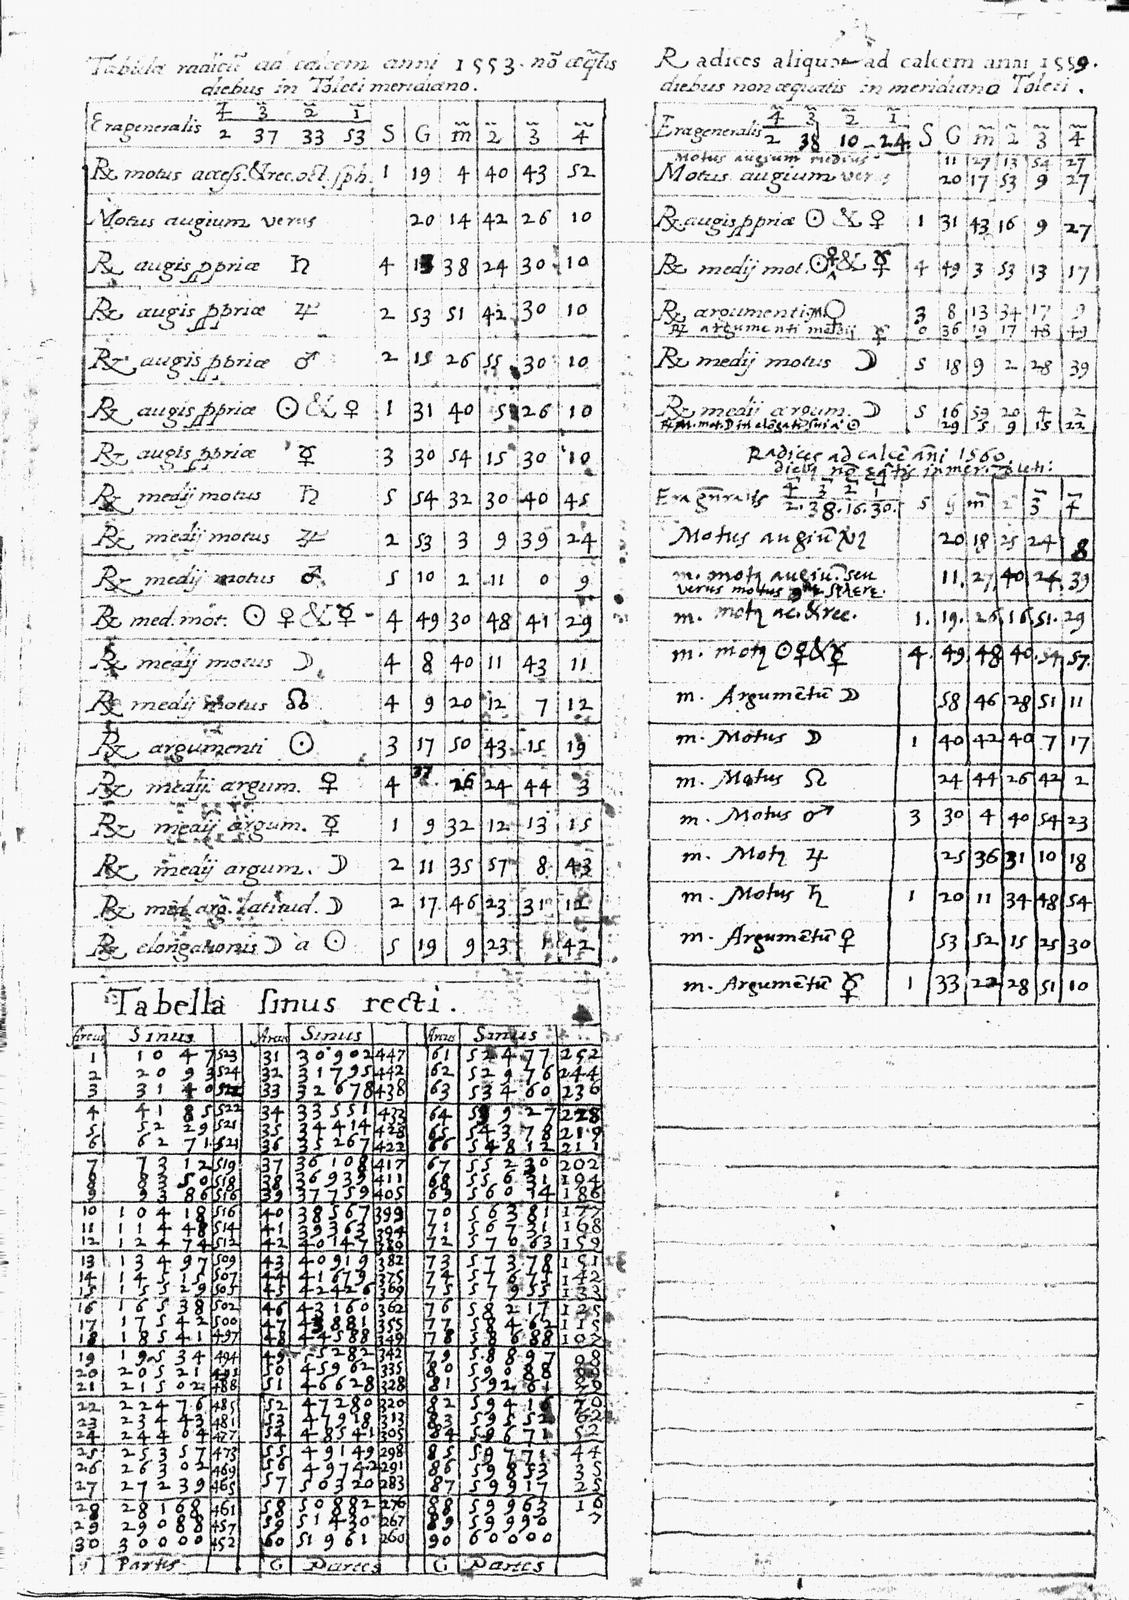 Tabula radicũ ad calcem anni 1553. nõ æq̃lis
diebus in Toleti meridiano.
4̃ 3̃ 2̃ 1̃
Erageneralis 2 37 33 53 S G m̃ 2̃ 3̃ 4̃
℞ motus access. & rec. oct. sph. 1 19 4 40 43 52
Motus augium verus 20 14 42 26 10
℞ augis ppriæ ♄ 4 38 24 30 10
℞ augis ppriæ ♃ 2 53 51 42 30 10
℞ augis ppriæ ♂ 2 15 26 55 30 10
℞ augis ppriæ ☉ & ♀ 1 31 40 5 26 10
℞ augis ppriæ ☿ 3 30 54 15 30 10
℞ medij motus ♄ 5 54 32 30 40 45
℞ medij motus ♃ 2 53 3 9 39 24
℞ medij motus ♂ 5 10 2 11 0 9
℞ med. mot. ☉ ♀ & ☿ 4 49 30 48 41 29
℞ medij motus ☽ 4 8 40 11 43 11
℞ medij motus ☊ 4 9 20 12 7 12
℞ argumenti ☉ 3 17 50 43 15 19
℞ medij argum. ♀ 4 37 26 24 44 3
℞ medij argum. ☿ 1 9 32 12 13 15
℞ medij argum. ☽ 2 11 35 57 8 43
℞ med. arg. latitud. ☽ 2 17 46 23 31 12
℞ elongationis ☽ a ☉ 5 19 9 23 1 42
Tabella sinus recti.
Arcus Sinus Arcus Sinus Arcus Sinus
1 1 0 4 7 523 31 30902 447 61 52477 252
2 2 0 9 3 524 32 31795 442 62 52976 244
3 3 1 4 0 33 32678 438 63 53460 236
4 4 1 8 5 522 34 33551 432 64 53927 228
5 5 2 29 521 35 34414 65 54378 219
6 6 2 71 521 36 35267 422 66 54812 211
7 7 3 12 519 37 36108 417 67 55230 202
8 8 3 50 518 38 36939 411 68 55631 194
9 9 3 86 516 39 37759 405 69 56014 186
10 10418 516 40 38567 399 70 56381 177
11 11448 514 41 39363 394 71 56731 168
12 12474 512 42 40147 72 57063 159
13 13497 509 43 40919 382 73 57378 151
14 14515 507 44 41679 375 74 57675 142
15 15529 505 45 42426 369 75 57955 133
16 16538 502 46 43160 362 76 58217 125
17 17542 500 47 43881 355 77 58462 115
18 18541 497 48 44588 349 78 58688 107
19 19534 494 49 5282 342 79 58897 98
20 20521 50 45962 335 80 59088
21 21502 488 51 46628 328 81 59261
22 22476 485 52 47280 320 82 59416 70
23 23443 481 53 47918 313 83 59552 62
24 24404 477 54 48541 305 84 59671 52
25 25357 473 55 49149 298 85 59771 44
26 26302 469 56 49742 291 86 59853 35
27 27239 465 57 50320 283 87 59917 25
28 28168 461 58 50882 276 88 59963 16
29 29088 457 59 51430 267 89 59990 7
30 30000 452 60 51961 260 90 60000
G Partes G Partes G Partes
Radices aliquot ad calcem anni 1559.
diebus non æquatis in meridiano Toleti.
4̃ 3̃ 2̃ 1̃
Erageneralis 2 38 10 24 S G m̃ 2̃ 3̃ 4̃
Motus augium medius 11 27 13 54 27
Motus augium verus 20 17 53 9 27
℞ augis ppriæ ☉ & ♀ 1 31 43 16 9 27
℞ medij mot. ☉ ♀ & ☿ 4 49 3 53 13 17
℞ argumenti 3 8 13 34 17 9
℞ argumenti medij ☿ 0 36 19 17 48 49
℞ medij motus ☽ 5 18 9 2 28 39
℞ medij argum. ☽ 5 16 59 20 4 2
29 5 9 15 22
Radices ad calcẽ ãni 1560.
4̃ 3̃ 2̃ 1̃
Era gñralis 2. 38. 16. 30. S G m̃ 2̃ 3̃ 4̃
Motus augiũ 20 18 25 24 8
m. motq augiũ. seu 11. 27 40 24 39
verus motus sphere.
m. motq ac. & rec. 1. 19. 26 16 51. 29
m. motq ☉ ♀ & ☿ 4. 49. 48 40. 54. 57.
m. Argumẽtũ ☽ 58 46 28 51 11
m. Motus ☽ 1 40 42 40 7 17
m. Motus ☊ 24 44 26 42 2
m. Motus ♂ 3 30 4 40 54 23
m. Motq ♃ 25 36 31 10 18
m. Motus ♄ 1 20 11 34 48 54
m. Argumẽtũ ♀ 53 52 15 25 30
m. Argumẽtũ ☿ 1 33 22 28 51 10